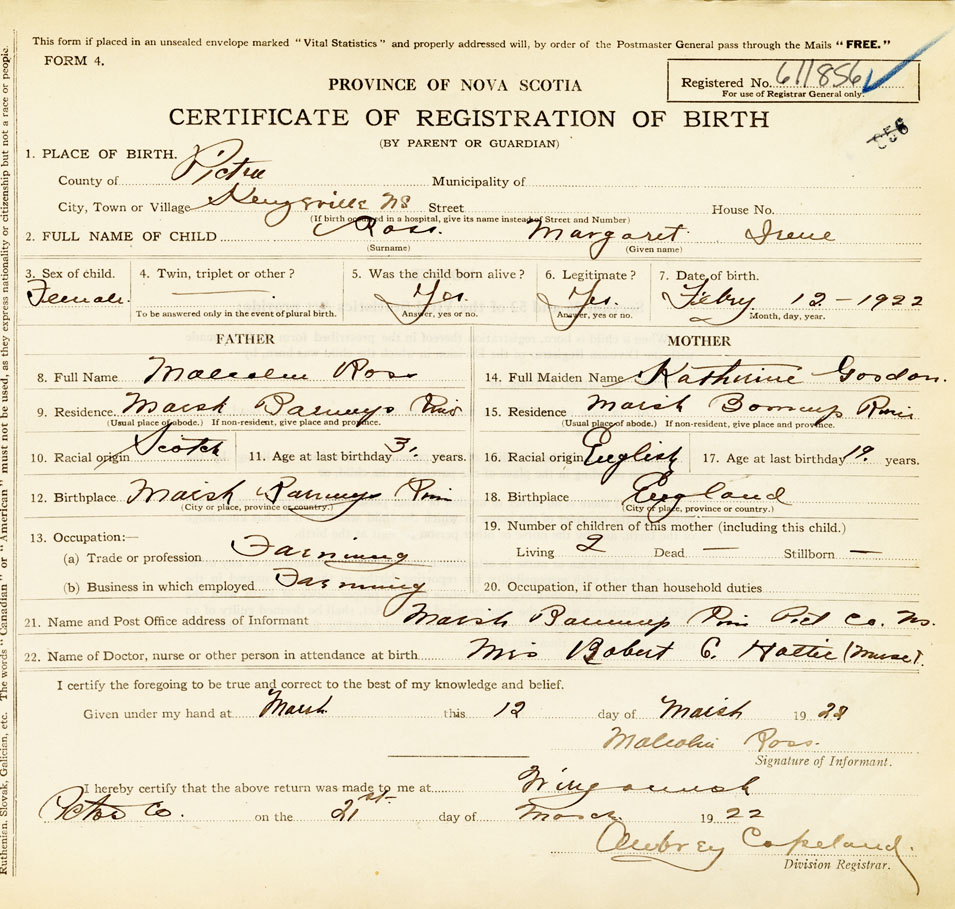 This form if placed in an unsealed envelope marked "Vital Statistics" and properly addressed will, by order of the Postmaster General pass through the Mails "FREE."
FORM 4.
Registered No. 611856
For use of Registrar General only.
PROVINCE OF NOVA SCOTIA
856
CERTIFICATE OF REGISTRATION OF BIRTH
(BY PARENT OR GUARDIAN)
1. PLACE OF BIRTH.
County of Pictou Municipality of
City, Town or Village NS Street House No.
(If birth occurred in a hospital, give its name instead of Street and Number)
2. FULL NAME OF CHILD Ross. Margaret Irene
(Surname) (Given name)
3. Sex of child. 4. Twin, triplet or other? 5. Was the child born alive? 6. Legitimate? 7. Date of birth.
Female. — Yes. Yes. Febry 12 - 1922
To be answered only in the event of plural birth. Answer, yes or no. Answer, yes or no. Month, day, year.
FATHER MOTHER
8. Full Name Malcolm Ross 14. Full Maiden Name Katherine Gordon.
9. Residence Marsh Barneys River 15. Residence Marsh Barneys River
(Usual place of abode.) If non-resident, give place and province. (Usual place of abode.) If non-resident, give place and province.
10. Racial origin Scotch 11. Age at last birthday years. 16. Racial origin English 17. Age at last birthday 19 years.
12. Birthplace Marsh Barneys River 18. Birthplace England
(City or place, province or country.) (City or place, province or country.)
13. Occupation:— 19. Number of children of this mother (including this child.)
(a) Trade or profession Farming Living 2 Dead — Stillborn —
(b) Business in which employed Farming 20. Occupation, if other than household duties
21. Name and Post Office address of Informant Marsh Barneys River Pict Co. Ns.
22. Name of Doctor, nurse or other person in attendance at birth Mrs Robert C. Hattie (Nurse).
I certify the foregoing to be true and correct to the best of my knowledge and belief.
Given under my hand at Marsh this 12 day of March 1922
Malcolm Ross.
Signature of Informant.
I hereby certify that the above return was made to me at
Pictou Co. on the 21st. day of March 1922
Aubrey Copeland.
Division Registrar.
Ruthenian, Slovak, Galician, etc. The words "Canadian" or "American" must not be used, as they express nationality or citizenship but not a race or people.